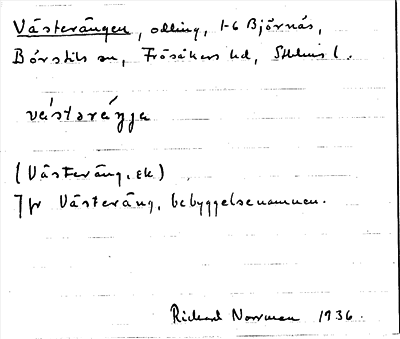 Västerängen, odling, 1-6 Björnäs,
Börstils sn, Frösåkers hd, Sthlms l.
västəräŋja
(Västeräng, ek)
Jfr Västeräng, bebyggelsenamnen.
Rickard Norrman 1936.